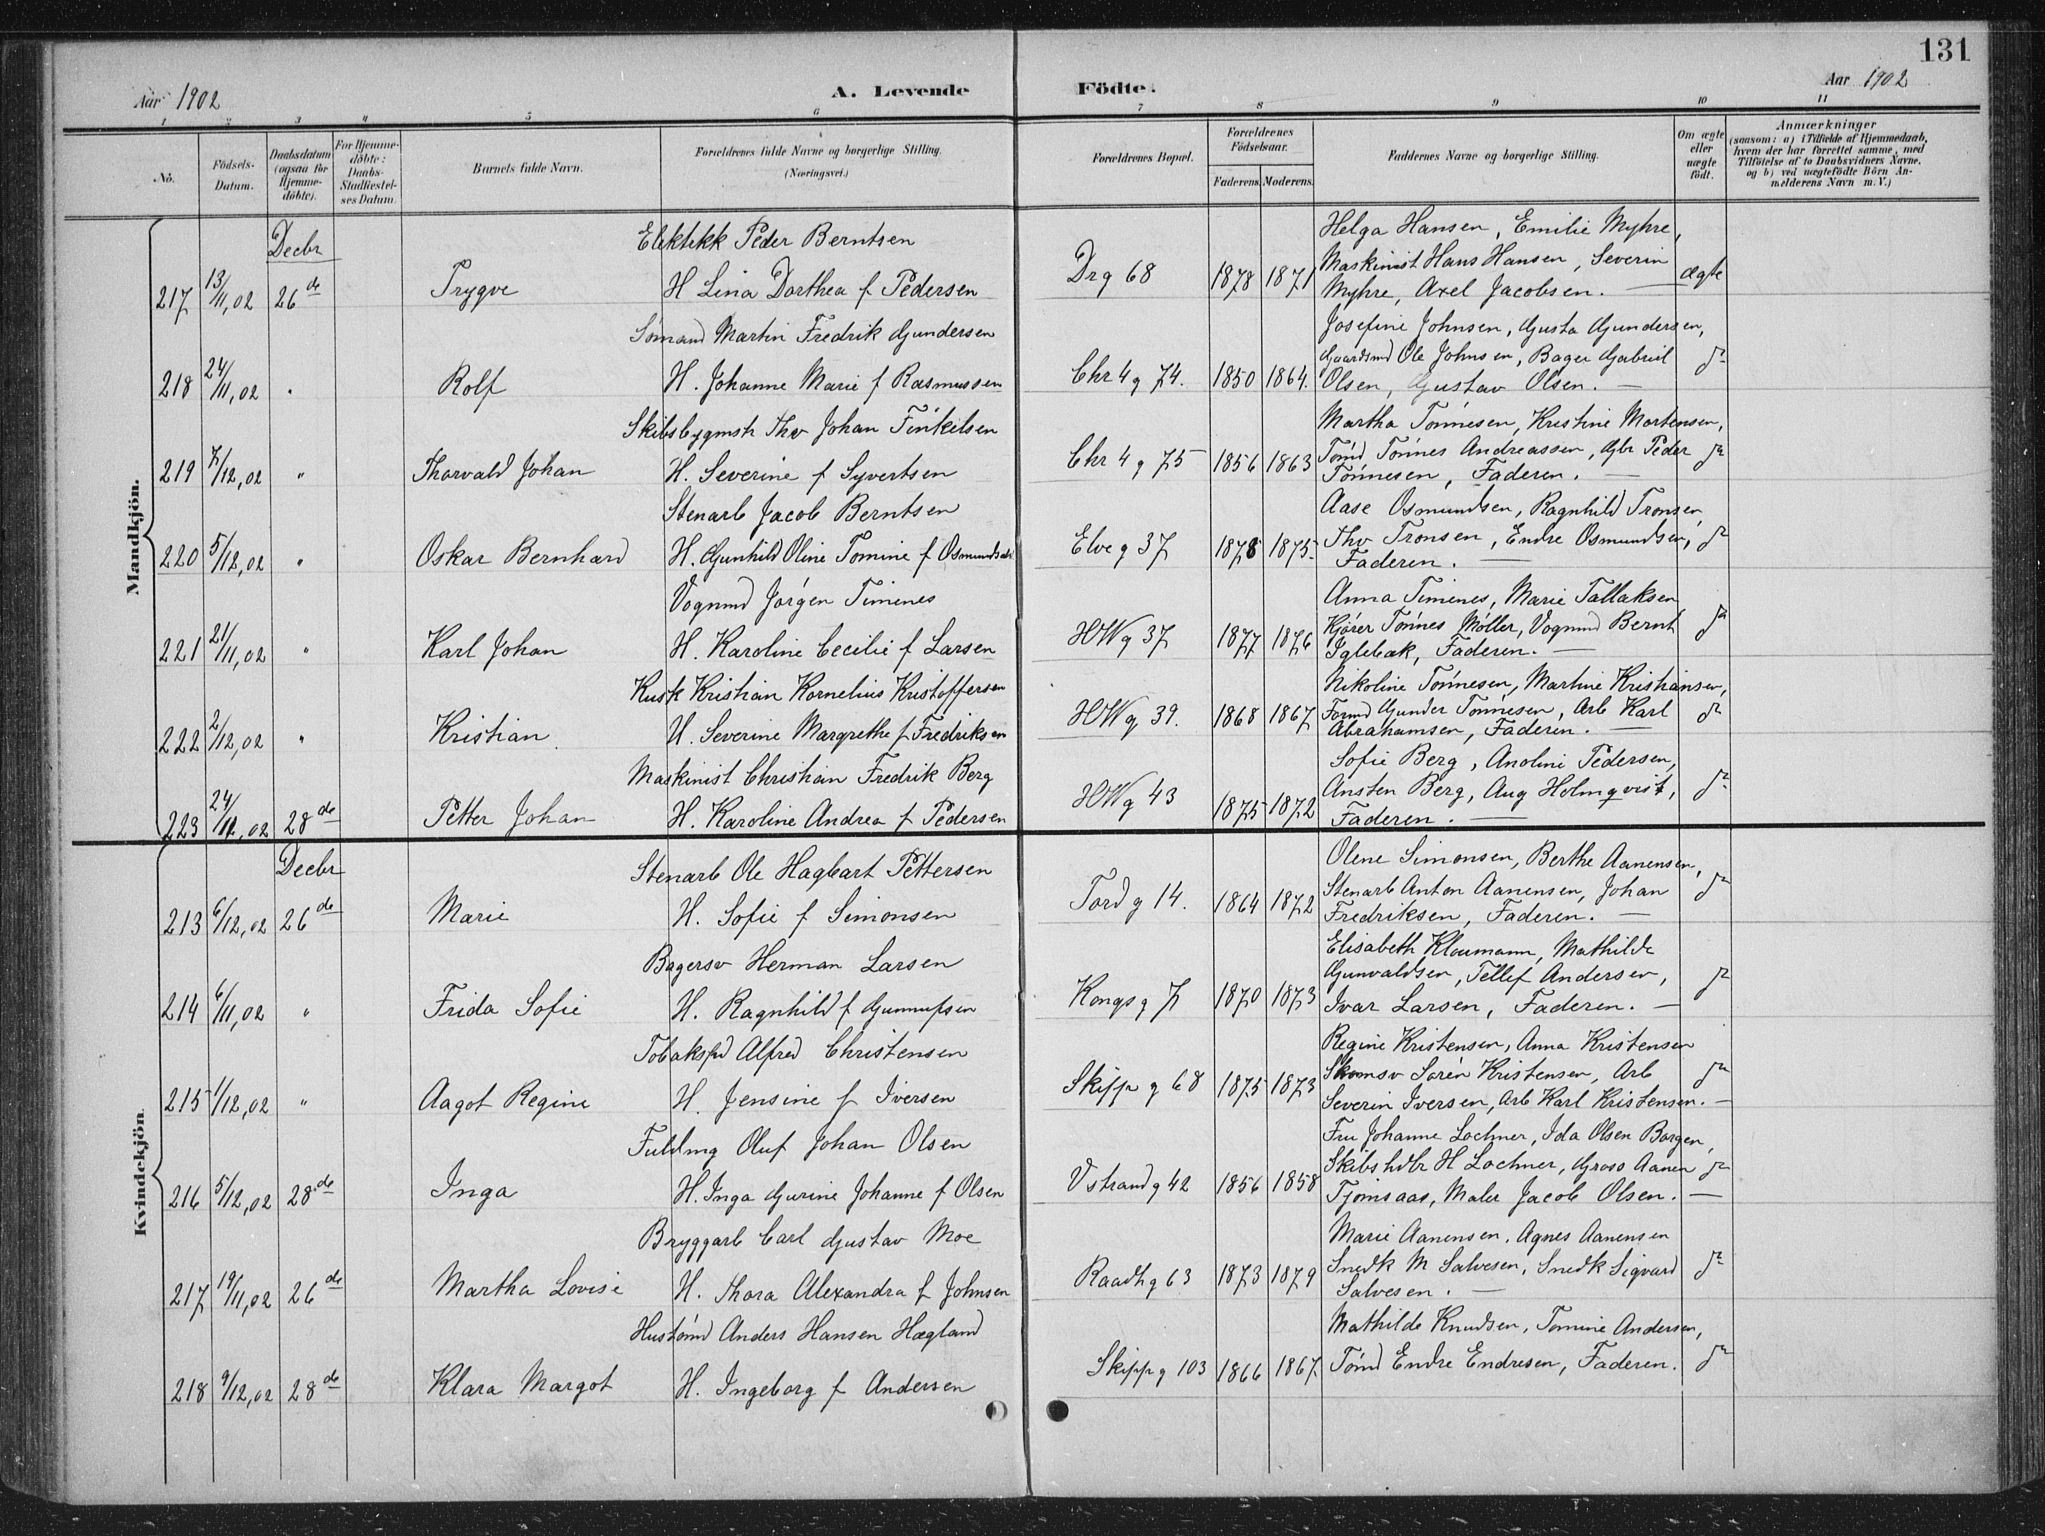 131
Aar 1902 A. Levende Födte. Aar 1902
1 2 3 4 5 6 7 8 9 10 11
No.
Födsels-Datum.
Daabsdatum (ogsaa for Hjemme-döbte).
For Hjemme-döbte: Daabs-Stadfæstel-ses Datum.
Barnets fulde Navn.
Forældrenes fulde Navne og borgerlige Stilling.
(Næringsvei.)
Forældrenes Bopæl.
Forældrenes Födselsaar.
Faderens. Moderens.
Faddernes Navne og borgerlige Stilling.
Om ægte eller uægte födt.
Anmærkninger
(saasom: a) i Tilfælde af Hjemmedaab, hvem der har forrettet samme, med Tilföielse af to Daabsvidners Navne, og b) ved uægtefödte Börn An-melderens Navn m. V.)
Mandkjön.
Decbr Elektrkk Peder Berntsen Helga Hansen, Emilie Myhre,
217 13/11,02 26de Trygve H Lina Dorthea f Pedersen Drg 68 1878 1871 Maskinist Hans Hansen, Severin ægte
Myhre, Axel Jacobsen. —
Sømand Martin Fredrik Gundersen Josefine Johnsen, Gusta Gundersen,
218 24/11,02 " Rolf H. Johanne Marie f Rasmussen Chr 4 g 74. 1850 1864. Gaardsmd Ole Johnsen, Bager Gabriel do
Olsen, Gustav Olsen. —
Skibsbygmstr Thv Johan Finkelsen Martha Tønnesen, Kristine Mortensen,
219 7/12,02 " Thorvald Johan H. Severine f Syvertsen Chr 4 g 75 1856 1863 Tømd Tønnes Andreassen, Gbr Peder do
Tønnesen, Faderen. —
Stenarb Jacob Berntsen Aase Osmundsen, Ragnhild Tronsen,
220 5/12,02 " Oskar Bernhard H. Gunhild Oline Tomine f Osmundsen Elve g 37 1878 1875 Thv Tronsen, Endre Osmundsen, do
Faderen. —
Vognmd Jørgen Timenes Anna Timenes, Marie Tallaksen
221 21/11,02 " Karl Johan H. Karoline Cecilie f Larsen HWg 37 1877 1876 Kjører Tønnes Møller, Vognmd Bernt do
Iglebæk, Faderen. —
Kusk Kristian Kornelius Kristoffersen Nikoline Tønnesen, Martine Kristiansen,
222 2/12,02 " Kristian H. Severine Margrethe f Fredriksen HWg 39. 1868 1867 Formd Gunder Tønnesen, Arb Karl do
Abrahamsen, Faderen. —
Maskinist Christian Fredrik Berg Sofie Berg, Anoline Pedersen,
223 24/11,02 28de Petter Johan H. Karoline Andrea f Pedersen HWg 43 1875 1872 Ansten Berg, Aug Holmqvist, do
Faderen. —
Kvindekjön.
Decbr Stenarb Ole Hagbart Pettersen Olene Simonsen, Berthe Aanensen,
213 6/12,02 26de Marie H. Sofie f Simonsen Tord g 14. 1864 1872 Stenarb Anton Aanensen, Johan do
Fredriksen, Faderen. —
Bagersv Herman Larsen Elisabeth Kloumann, Mathilde
214 6/11,02 " Frida Sofie H. Ragnhild f Gunnufsen Kongs g 7 1870 1873 Gunvaldsen, Tellef Andersen, do
Ivar Larsen, Faderen. —
Tobakspd Alfred Christensen Regine Kristensen, Anna Kristensen
215 1/12,02 " Aagot Regine H. Jensine f Iversen Skipp g 68 1875 1873 Skomsv Søren Kristensen, Arb do
Severin Iversen, Arb Karl Kristensen. —
Fuldmg Oluf Johan Olsen Fru Johanne Lochner, Ida Olsen Borgen,
216 5/12,02 28de Inga H. Inga Gurine Johanne f Olsen Vstrand g 42 1856 1858 Skibshdlr H Lochner, Gross Aanen do
Tjomsaas, Maler Jacob Olsen. —
Bryggarb Carl Gustav Moe Marie Aanensen. Agnes Aanensen
217 19/11,02 26de Martha Lovise H. Thora Alexandra f Johnsen Raadhg 63 1873 1879 Snedk M Salvesen, Snedk Sigvard do
Salvesen. —
Hustømd Anders Hansen Hægland Mathilde Knudsen, Tomine Andersen,
218 9/12,02 28de Klara Margot H. Ingeborg f Andersen Skipp g 103 1866 1867 Tømd Endre Endresen, Faderen. do